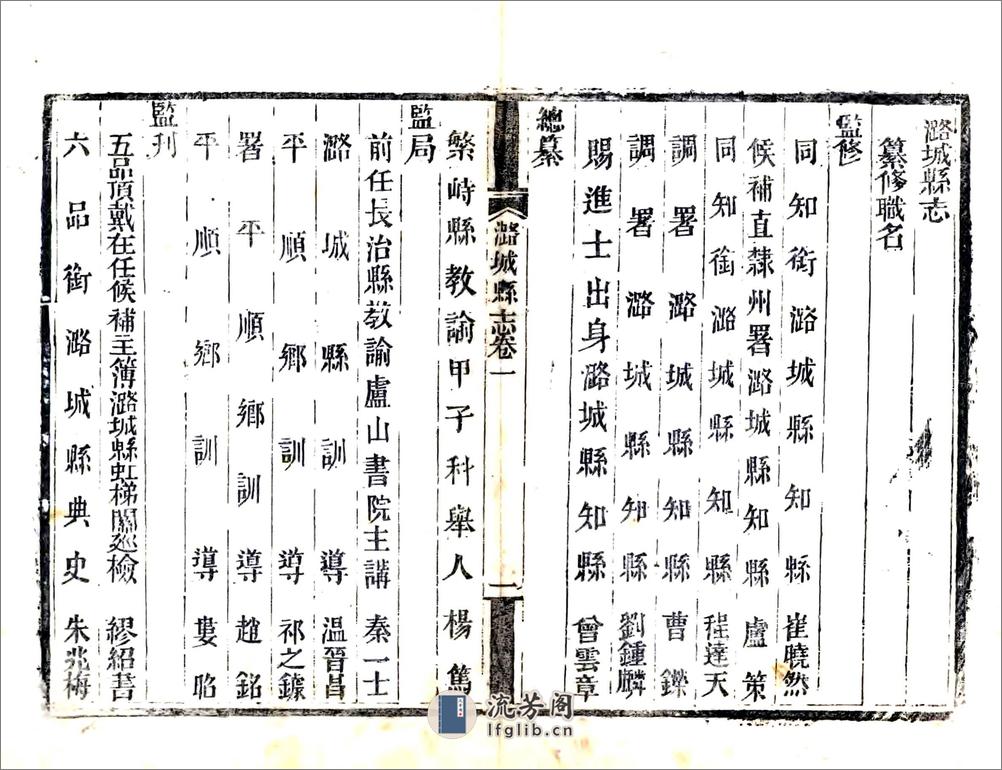 潞城縣志
纂修職名
監修
同知銜潞城縣知縣崔曉然
候補直隸州署潞城縣知縣盧策
同知銜潞城縣知縣程達天
調署潞城縣知縣曹鑠
調署潞城縣知縣劉鍾麟
賜進士出身潞城縣知縣曾雲章
總纂
潞城縣志卷一
一
繁峙縣教諭甲子科舉人楊篤
監局
前任長治縣教諭盧山書院主講秦一士
潞城縣訓導溫晉昌
平順鄉訓導祁之鑅
署平順鄉訓導趙銘
平順鄉訓導婁昭
監刊
五品頂戴在任候補主簿潞城縣虹梯關巡檢繆紹書
六品銜潞城縣典史朱兆梅
流芳阁
lfglib.cn